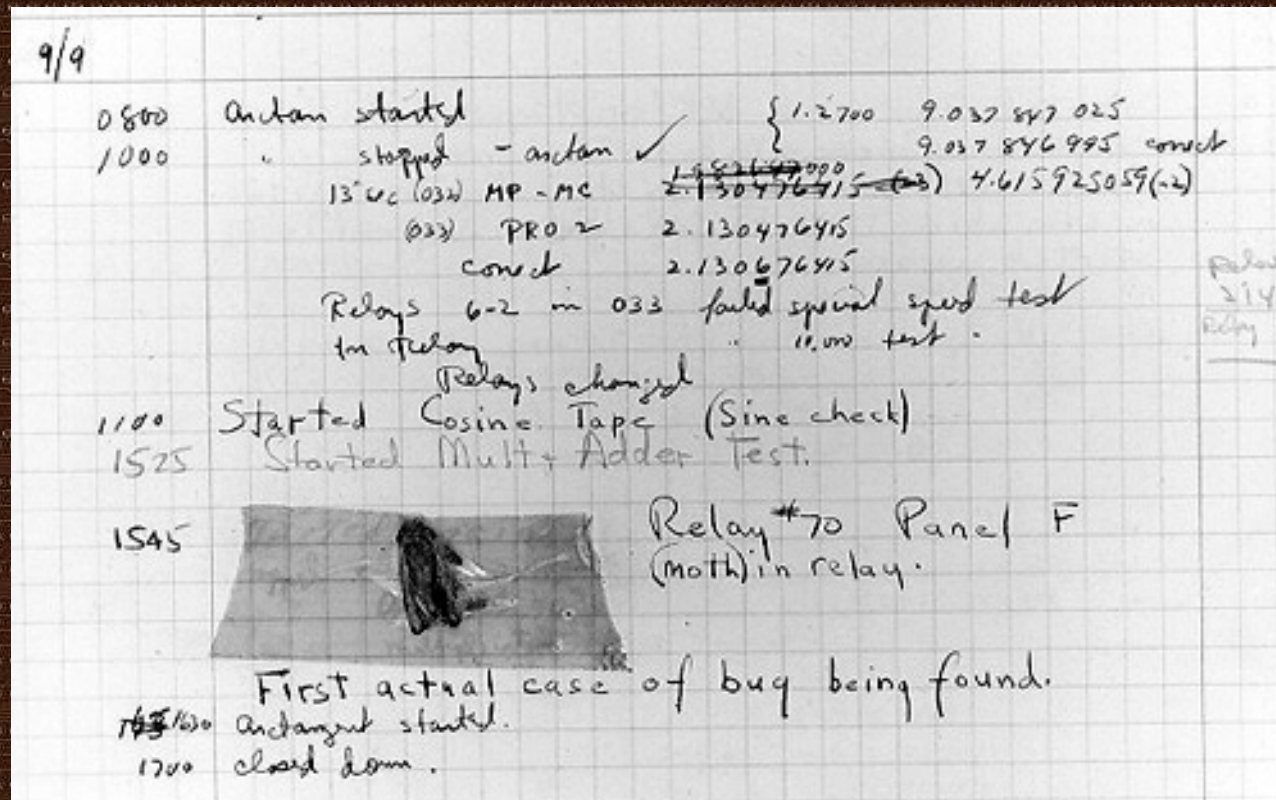 9/9
0800 arctan started { 1.2700 9.037 847 025
1000 " stopped - arctan ✓ 9.037 846 995 correct
13"uc (032) MP - MC 2.130476415 (-3) 4.615925059(-2)
(033) PRO 2 2.130476415
correct 2.130676415
Relays 6-2 in 033 failed special speed test
In Relay " 10,000 test.
Relays changed
1100 Started Cosine Tape (Sine check)
1525 Started Mult+ Adder Test.
1545 Relay #70 Panel F
(moth) in relay.
First actual case of bug being found.
1630 arctangent started.
1700 closed down.
Relay
Relay